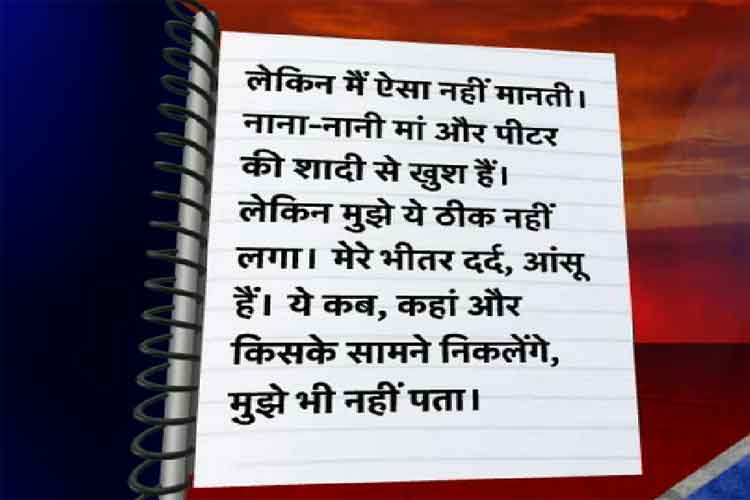 लेकिन मैं ऐसा नहीं मानती।
नाना-नानी मां और पीटर
की शादी से खुश हैं।
लेकिन मुझे ये ठीक नहीं
लगा। मेरे भीतर दर्द, आंसू
हैं। ये कब, कहां और
किसके सामने निकलेंगे,
मुझे भी नहीं पता।